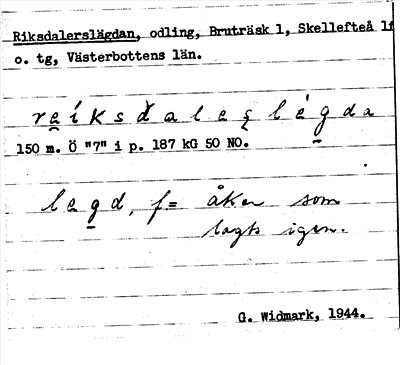 Riksdalerslägdan, odling, Bruträsk 1, Skellefteå lf
o. tg, Västerbottens län.
reíksdaleslégda
150 m. Ö "7" i p. 187 kG 50 NO.
legd, f = åker som
lagts igen.
G. Widmark, 1944.